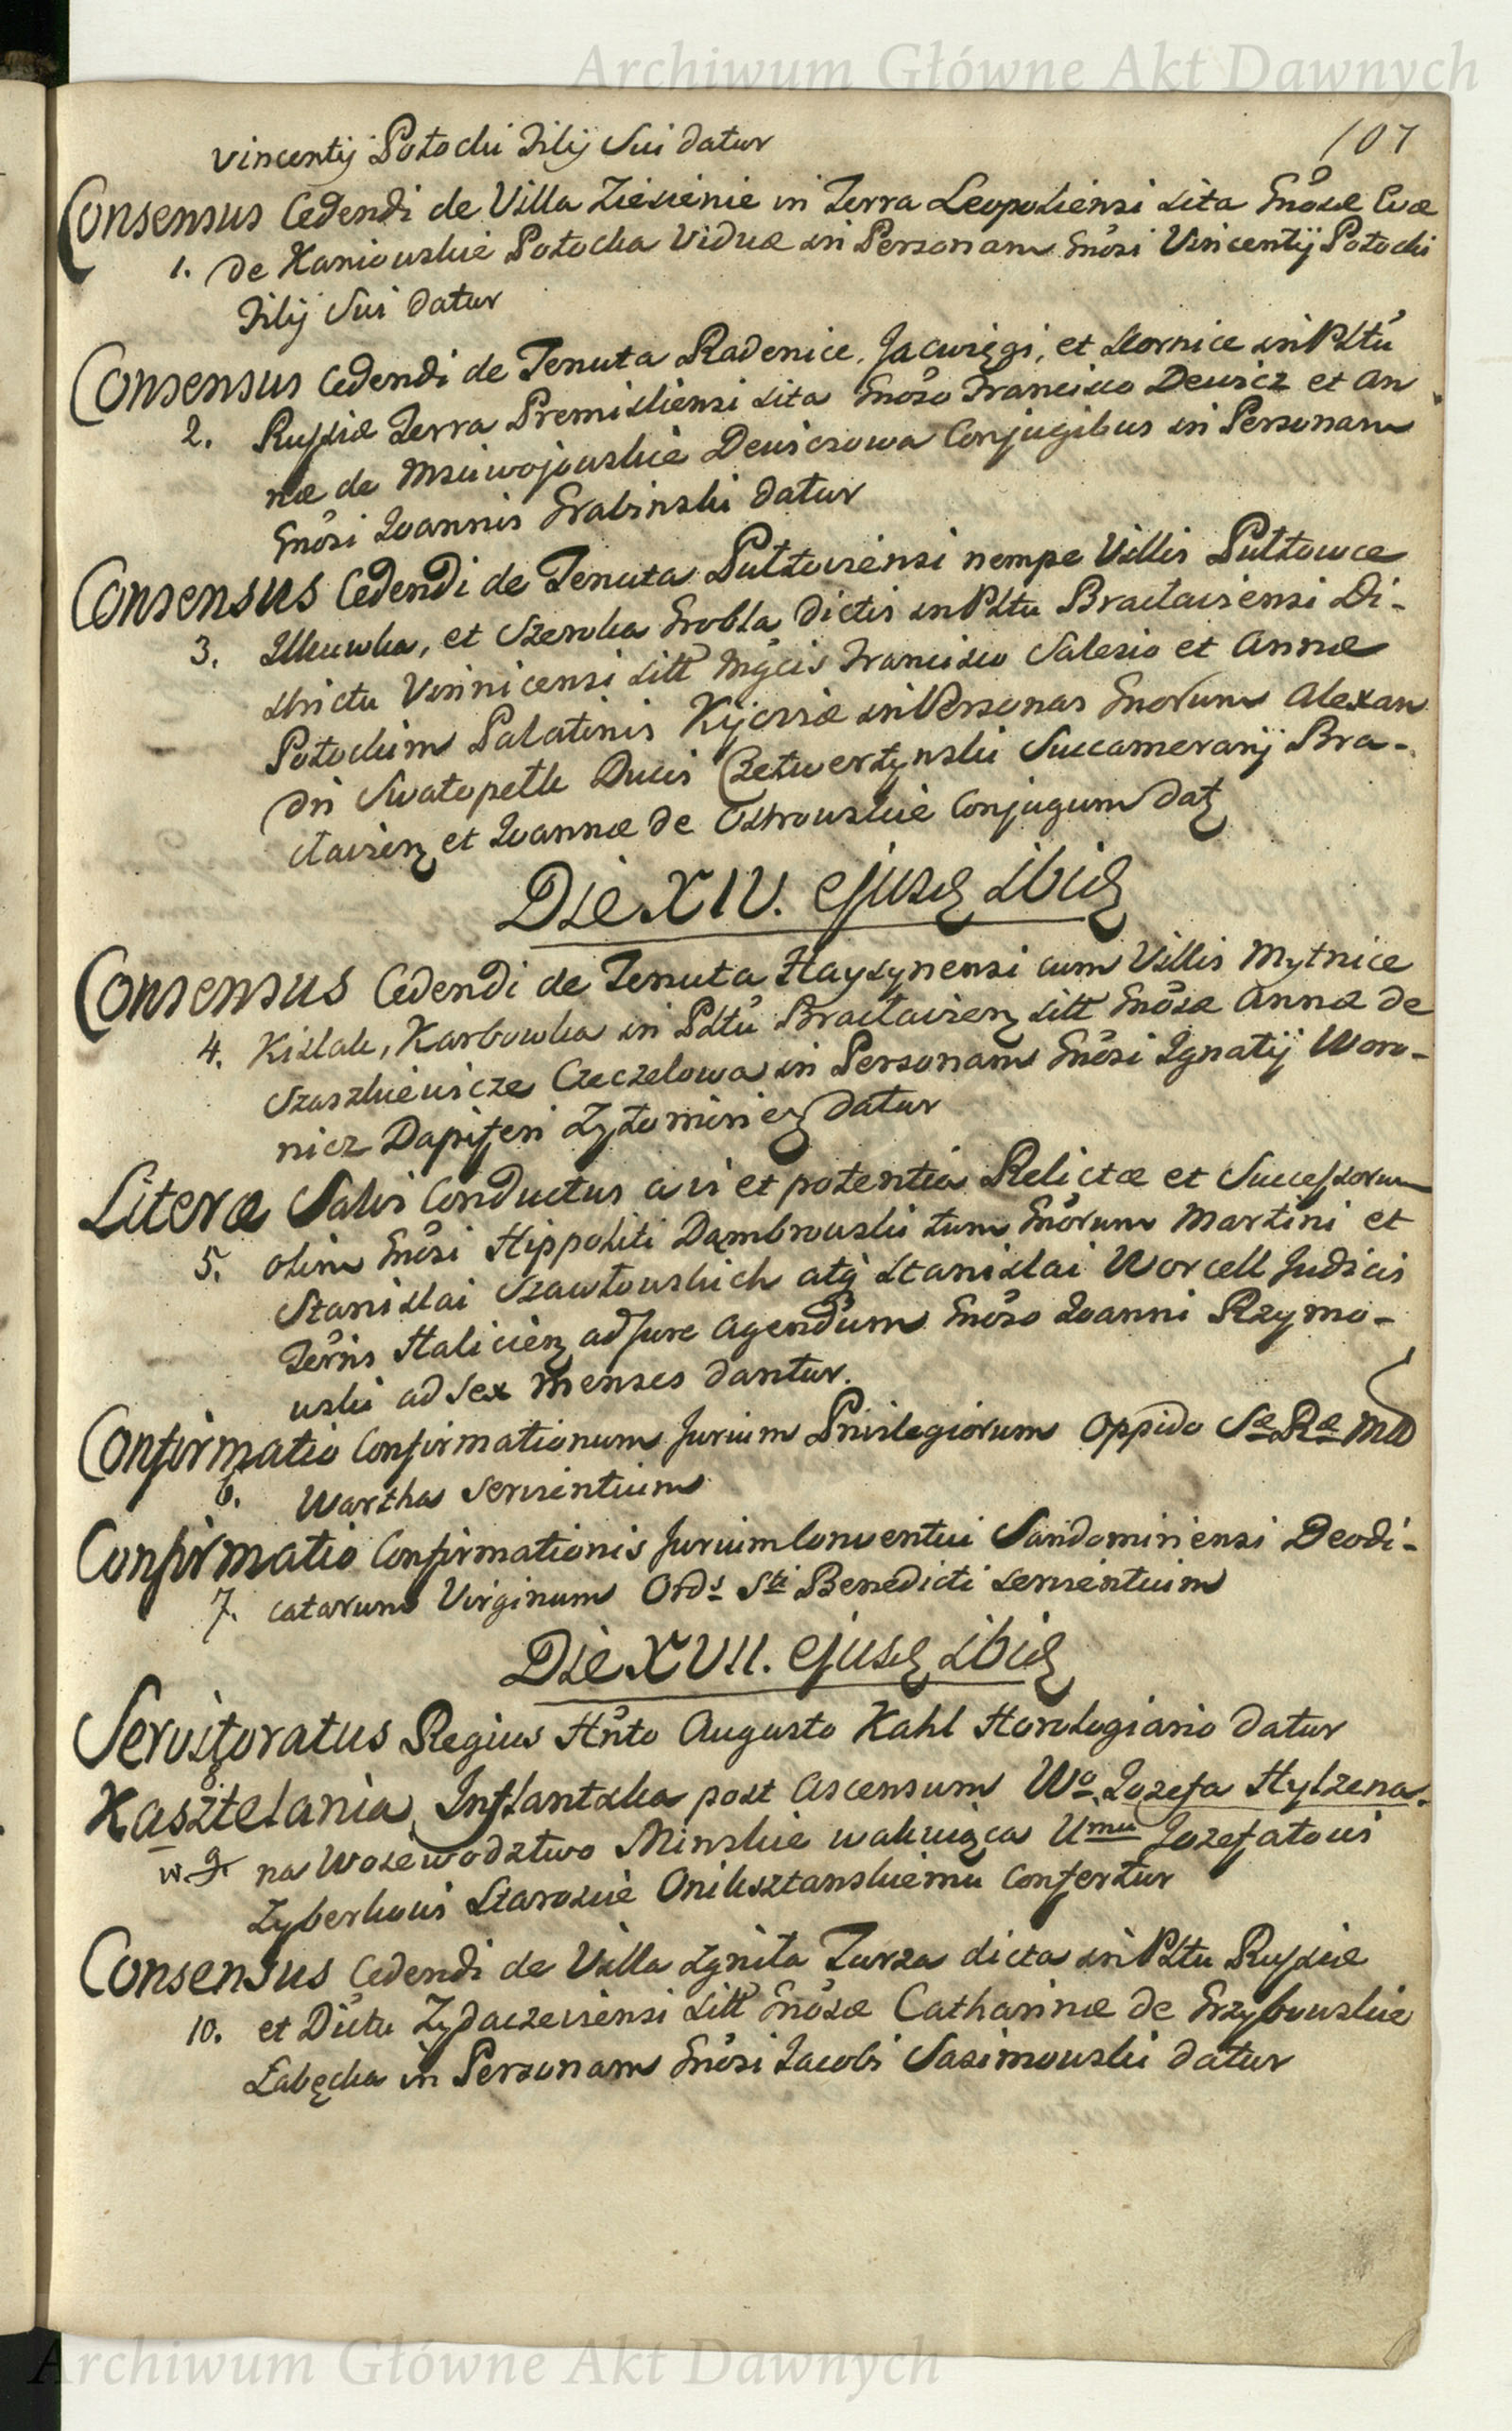 Archiwum Główne Akt Dawnych
107
Vincentij Potocki Filij Sui datur
Consensus Cedendi de Villa Zielenie in Terra Leopoliensi sita Gnosae Evae
1. de Kaniowskie Potocka Viduae in Personam Gnosi Vincentij Potocki
Filij Sui datur
Consensus Cedendi de Tenuta Radenice, Jacwięgi, et Hornice in Pltu
2. Russiae Terra Premisliensi sita Gnoso Francisco Dewicz et An
nae de Msciwojowskie Dewiczowa Conjugibus in Personam
Gnosi Joannis Grabinski datur
Consensus Cedendi de Tenuta Pultoviensi nempe Villis Pultowce
3. Ilkuwka, et Szeroka Grobla dictis in Pltu Braclaviensi Di-
strictu Vinnicensi sitt Mgcis Francisco Salesio et Annae
Potockim Palatinis Kijoviae in Personas Gnorum Alexan
dri Swatopelk Ducis Czetwertynski Succamerarij Bra-
claviens et Joannae de Cstrowskie Conjugum datz
Die XIV. ejusd ibid
Consensus Cedendi de Tenuta Haysynensi cum Villis Mytnice
4. Kislak, Karbowka in Pltu Braclavien sitt Gnosae Annae de
Szaszkiewicze Czeczelowa in Personam Gnosi Ignatij Woro-
nicz Dapiferi Zytomirien datur
Literae Salvi Conductus a vi et potentia Relictae et Successorum
5. olim Gnosi Hippoliti Dąmbrowski tum Gnorum Martini et
Stanislai Szawłowskich atq Stanislai Worcell Judicis
Terris Halicien ad Jure agendum Gnoso Joanni Rzymo-
wski ad Sex menses dantur.
Confirmatio Confirmationum Jurium Privilegiorum Oppido Sae Rae Mtti
6. Wartha Servientium
Confirmatio Confirmationis Jurium Conventui Sandomiriensi Deodi-
7. catarum Virginum Ords Sti Benedicti servientium
Die XVII. ejusd ibid
Servitoratus Regius Hnto Augusto Kahl Horologiario datur
8.
Kasztelania Inflantska post ascensum Wo Jozefa Hylzena
w. 9. na Woiewodztwo Minskie wakuiąca Umu Jozefatowi
Zyberkowi Staroscie Oniksztanskiemu Confertur
Consensus Cedendi de Villa Lgnita Turza dicta in Pltu Russiae
10. et Distu Zydaczeviensi sitt Gnosae Catharinae de Grzybowskie
Łabęcka in Personam Gnosi Jacobi Sasimowski datur
Archiwum Główne Akt Dawnych